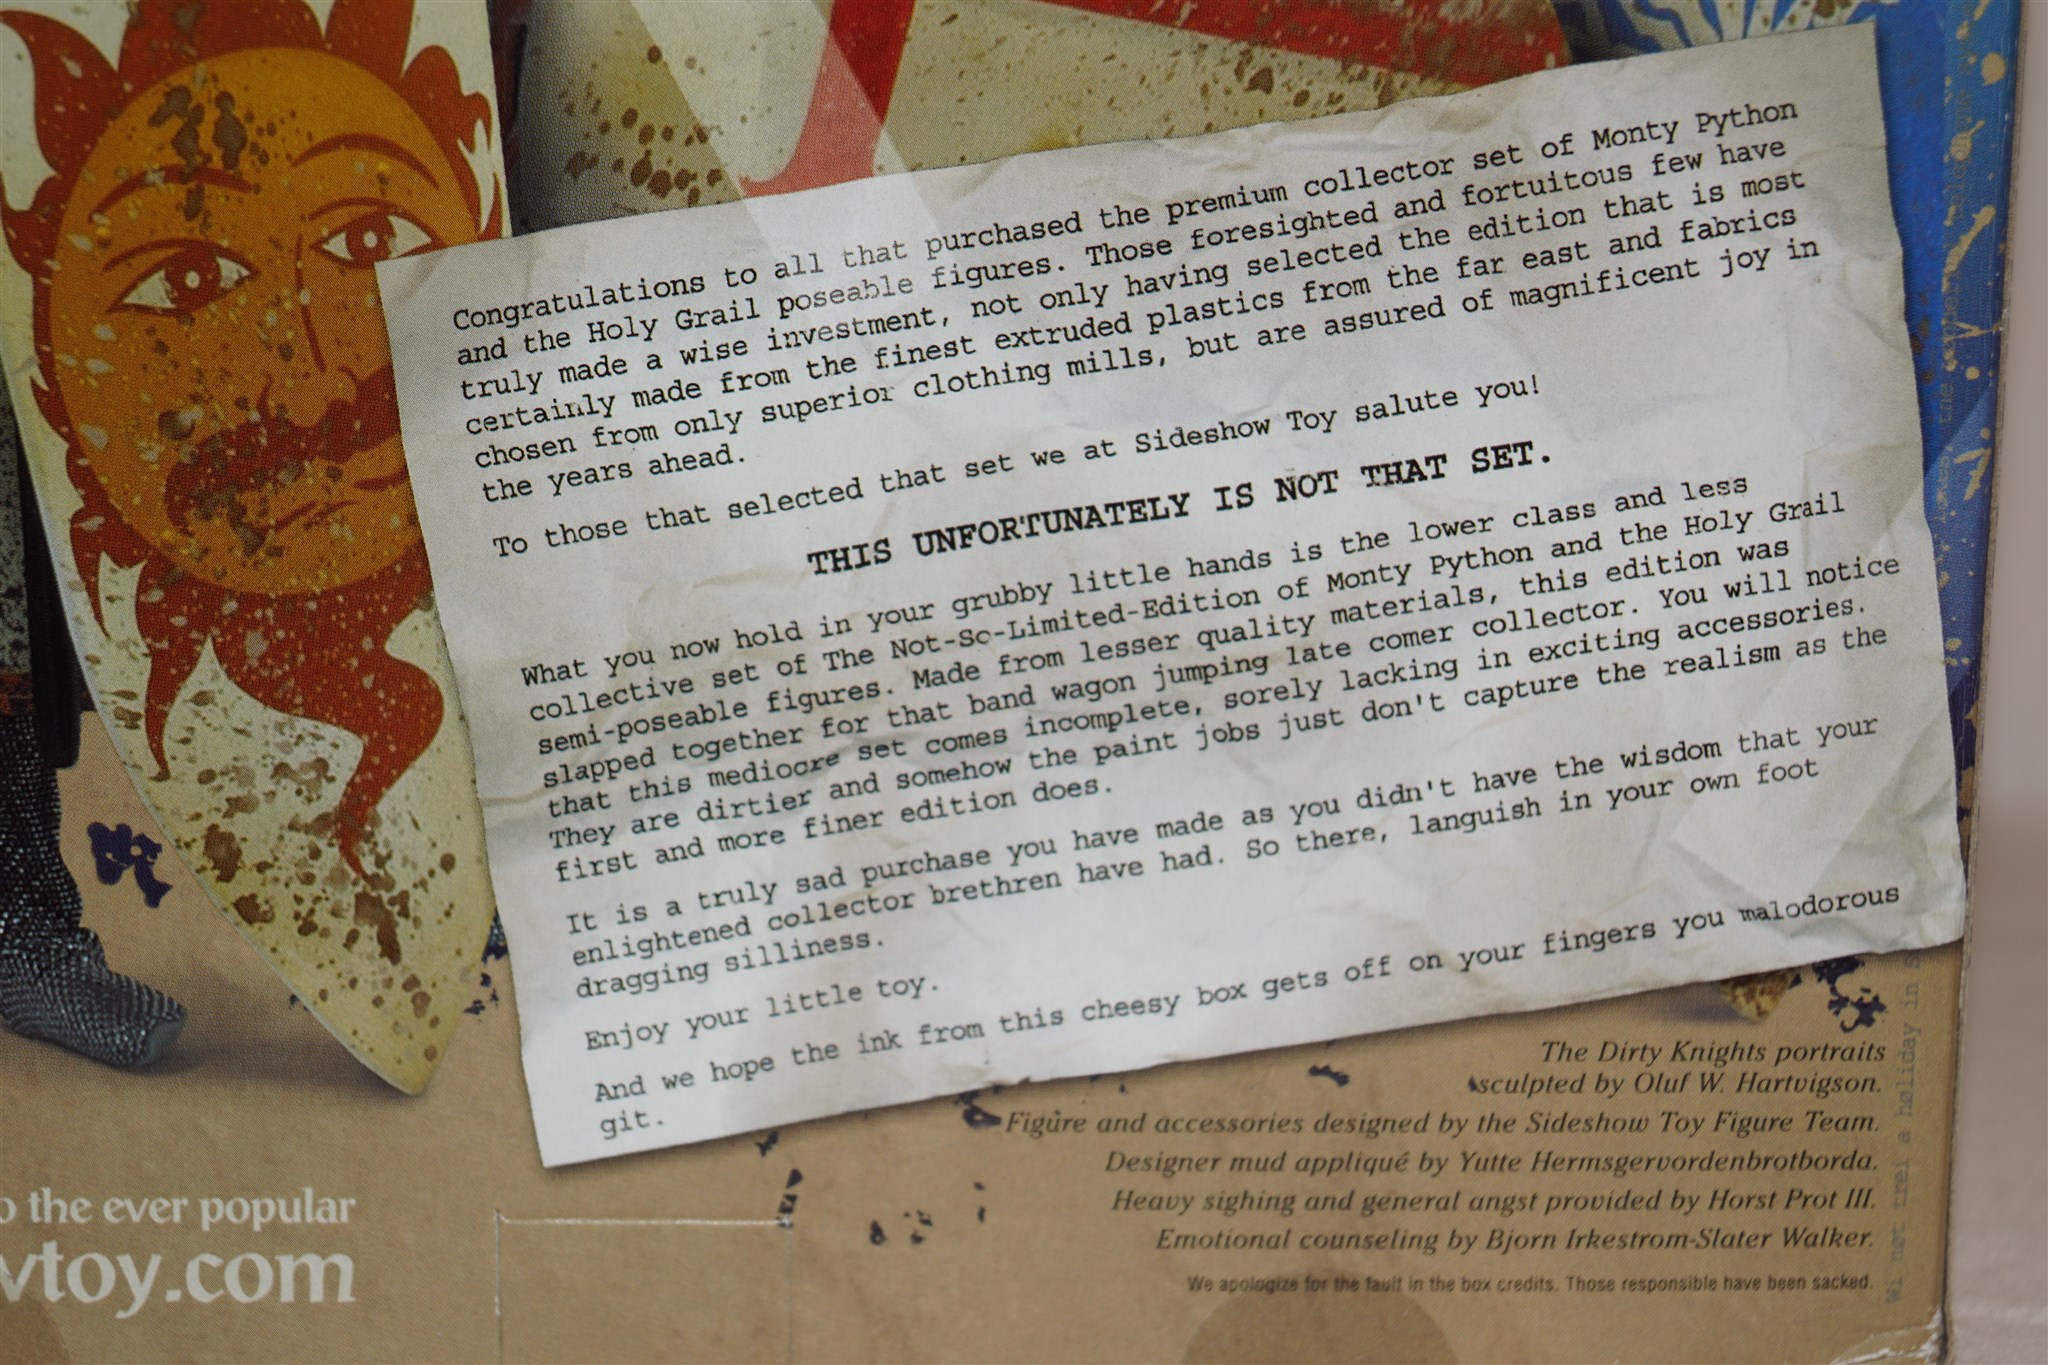 Congratulations to all that purchased the premium collector set of Monty Python
and the Holy Grail poseable figures. Those foresighted and fortuitous few have
truly made a wise investment, not only having selected the edition that is most
certainly made from the finest extruded plastics from the far east and fabrics
chosen from only superior clothing mills, but are assured of magnificent joy in
the years ahead.
To those that selected that set we at Sideshow Toy salute you!
THIS UNFORTUNATELY IS NOT THAT SET.
What you now hold in your grubby little hands is the lower class and less
collective set of The Not-So-Limited-Edition of Monty Python and the Holy Grail
semi-poseable figures. Made from lesser quality materials, this edition was
slapped together for that band wagon jumping late comer collector. You will notice
that this mediocre set comes incomplete, sorely lacking in exciting accessories.
They are dirtier and somehow the paint jobs just don't capture the realism as the
first and more finer edition does.
It is a truly sad purchase you have made as you didn't have the wisdom that your
enlightened collector brethren have had. So there, languish in your own foot
dragging silliness.
Enjoy your little toy.
And we hope the ink from this cheesy box gets off on your fingers you malodorous
git.
The Dirty Knights portraits
sculpted by Oluf W. Hartvigson.
Figure and accessories designed by the Sideshow Toy Figure Team.
Designer mud appliqué by Yutte Hermsgervordenbrotborda.
Heavy sighing and general angst provided by Horst Prot III.
Emotional counseling by Bjorn Irkestrom-Slater Walker.
We apologize for the fault in the box credits. Those responsible have been sacked.
o the ever popular
vtoy.com
Wi nøt trei a høliday in